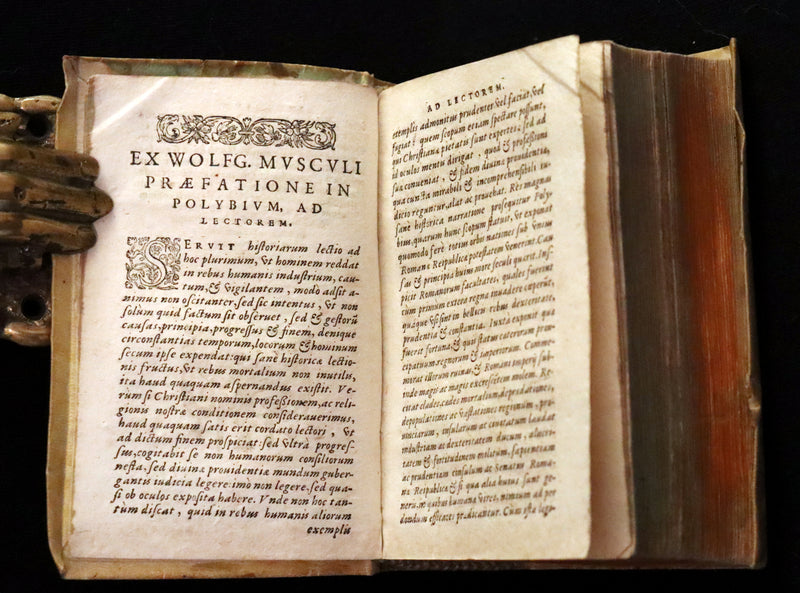 EX WOLFG. MVSCVLI
PRÆFATIONE IN
POLYBIVM, AD
LECTOREM.
SERVIT historiarum lectio ad
hoc plurimùm, vt hominem reddat
in rebus humanis industrium, cau-
tum, & vigilantem, modò adsit a-
nimus non oscitanter, sed sic intentus, vt non
solùm quid factum sit obseruet, sed & gestorũ
causas, principia, progressus & finem, denique
circonstantias temporum, locorum & hominum
secum ipse expendat: qui sanè historicæ lectio-
nis fructus, vt rebus mortalium non inutilis,
ita haud quaquam aspernandus existit. Ve-
rùm si Christiani nominis professionem, ac reli-
gionis nostræ conditionem considerauerimus,
haud quaquam satis erit cordato lectori, vt
ad dictum finem prospiciat: sed vltrà progres-
sus, cogitabit se non humanorum consiliorum
nesta, sed diuinæ prouidentiæ mundum guber-
gantis iudicia legere: imò non legere, sed qua-
si ob oculos exposita habere. Vnde non hoc tan-
tùm discat, quid in rebus humanis aliorum
exemplis
AD LECTOREM.
exemplis admonitus prudenter vel faciat, vel
fugiat: quem scopum etiam spectare possunt,
qui Christianæ pietatis sunt expertes: sed ad
id oculos mentis dirigat, quod & professioni
suæ conueniat, & fidem diuinæ prouidentiæ,
qua cuncta mirabili & incomprehensibili iu-
dicio reguntur, alat ac prouehat. Res magnas
sanè historica narratione prosequitur Poly-
bius, quarum hunc scopum statuit, vt exponat
quomodo ferè totius orbis nationes sub vnius
Romanæ Reipublicæ potestatem venerint. Cau-
sas & principia huius more seculi quærit. Ins-
picit Romanorum facultates, quales fuerint
cùm primùm extera regna inuadere cœperunt,
quáque vsi sint in bellicis rebus dexteritate,
prudentia & constantia. Iuxtà expendit quæ
fuerit fortuna, & qui status cæterorum prin-
cipatuum, regnorum & imperiorum. Comme-
mirat illorum ruinas, & Romani imperij sub-
inde magis ac magis excrescentem molem. Re-
citat clades, cædes mortalium, deprædationes,
depopulationes ac vastationes regionum, pro-
uinciarum, insularum ac ciuitatum: laudat
industriam ac dexteritatem ducum, alacri-
tatem & fortitudinem militum, sapientiam
ac prudentiam consulum ac Senatus Roma-
næ Reipublicæ & si qua alia huius sunt ge-
neris, in quibus humanæ vires, nimium ad per
dondum efficaces prædicantur. Cùm ista lege-